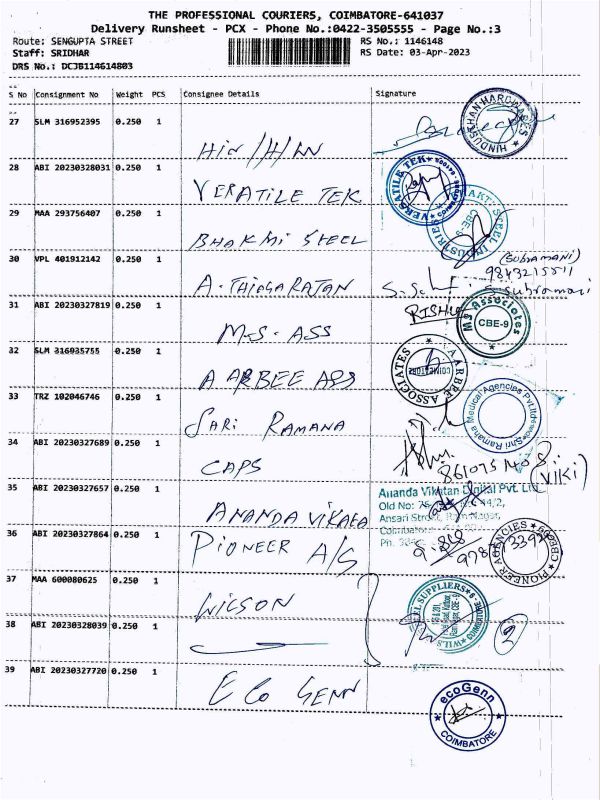 THE PROFESSIONAL COURIERS, COIMBATORE-641037
Delivery Runsheet - PCX - Phone No.:0422-3505555 - Page No.:3
Route: SENGUPTA STREET RS No.: 1146148
Staff: SRIDHAR RS Date: 03-Apr-2023
DRS No.: DCJB114614803
S No Consignment No Weight PCS Consignee Details Signature
27 SLM 316952395 0.250 1
HINDUSTHAN HARDWARES
HIN/H/
28 ABI 20230328031 0.250 1
VERATILE TEK VERSATILE TEK
29 MAA 293756407 0.250 1
BHAKMI STEEL STEEL INDUSTRIES CBE-9
30 VPL 401912142 0.250 1 (SUBRAMANI)
A. THIAGARAJAN
31 ABI 20230327819 0.250 1 RISHU
M.S. ASS MS Associates CBE-9
32 SLM 316935755 0.250 1
AARBEE ASS AARBEE ASSOCIATES COIMBATORE
33 TRZ 102046746 0.250 1
SARI RAMANA Shri Ramana Medical Agencies Pvt Ltd
34 ABI 20230327689 0.250 1
CAPS (VIKI)
35 ABI 20230327657 0.250 1 Ananda Vikatan Digital Pvt. Ltd
Old No:
Ansari Street,
ANANDA VIKATA
36 ABI 20230327864 0.250 1
PIONEER A/S PIONEER AGENCIES CBE-09
37 MAA 600080625 0.250 1
WILSON
38 ABI 20230328039 0.250 1
39 ABI 20230327720 0.250 1
ECO GENN ecoGenn
COIMBATORE